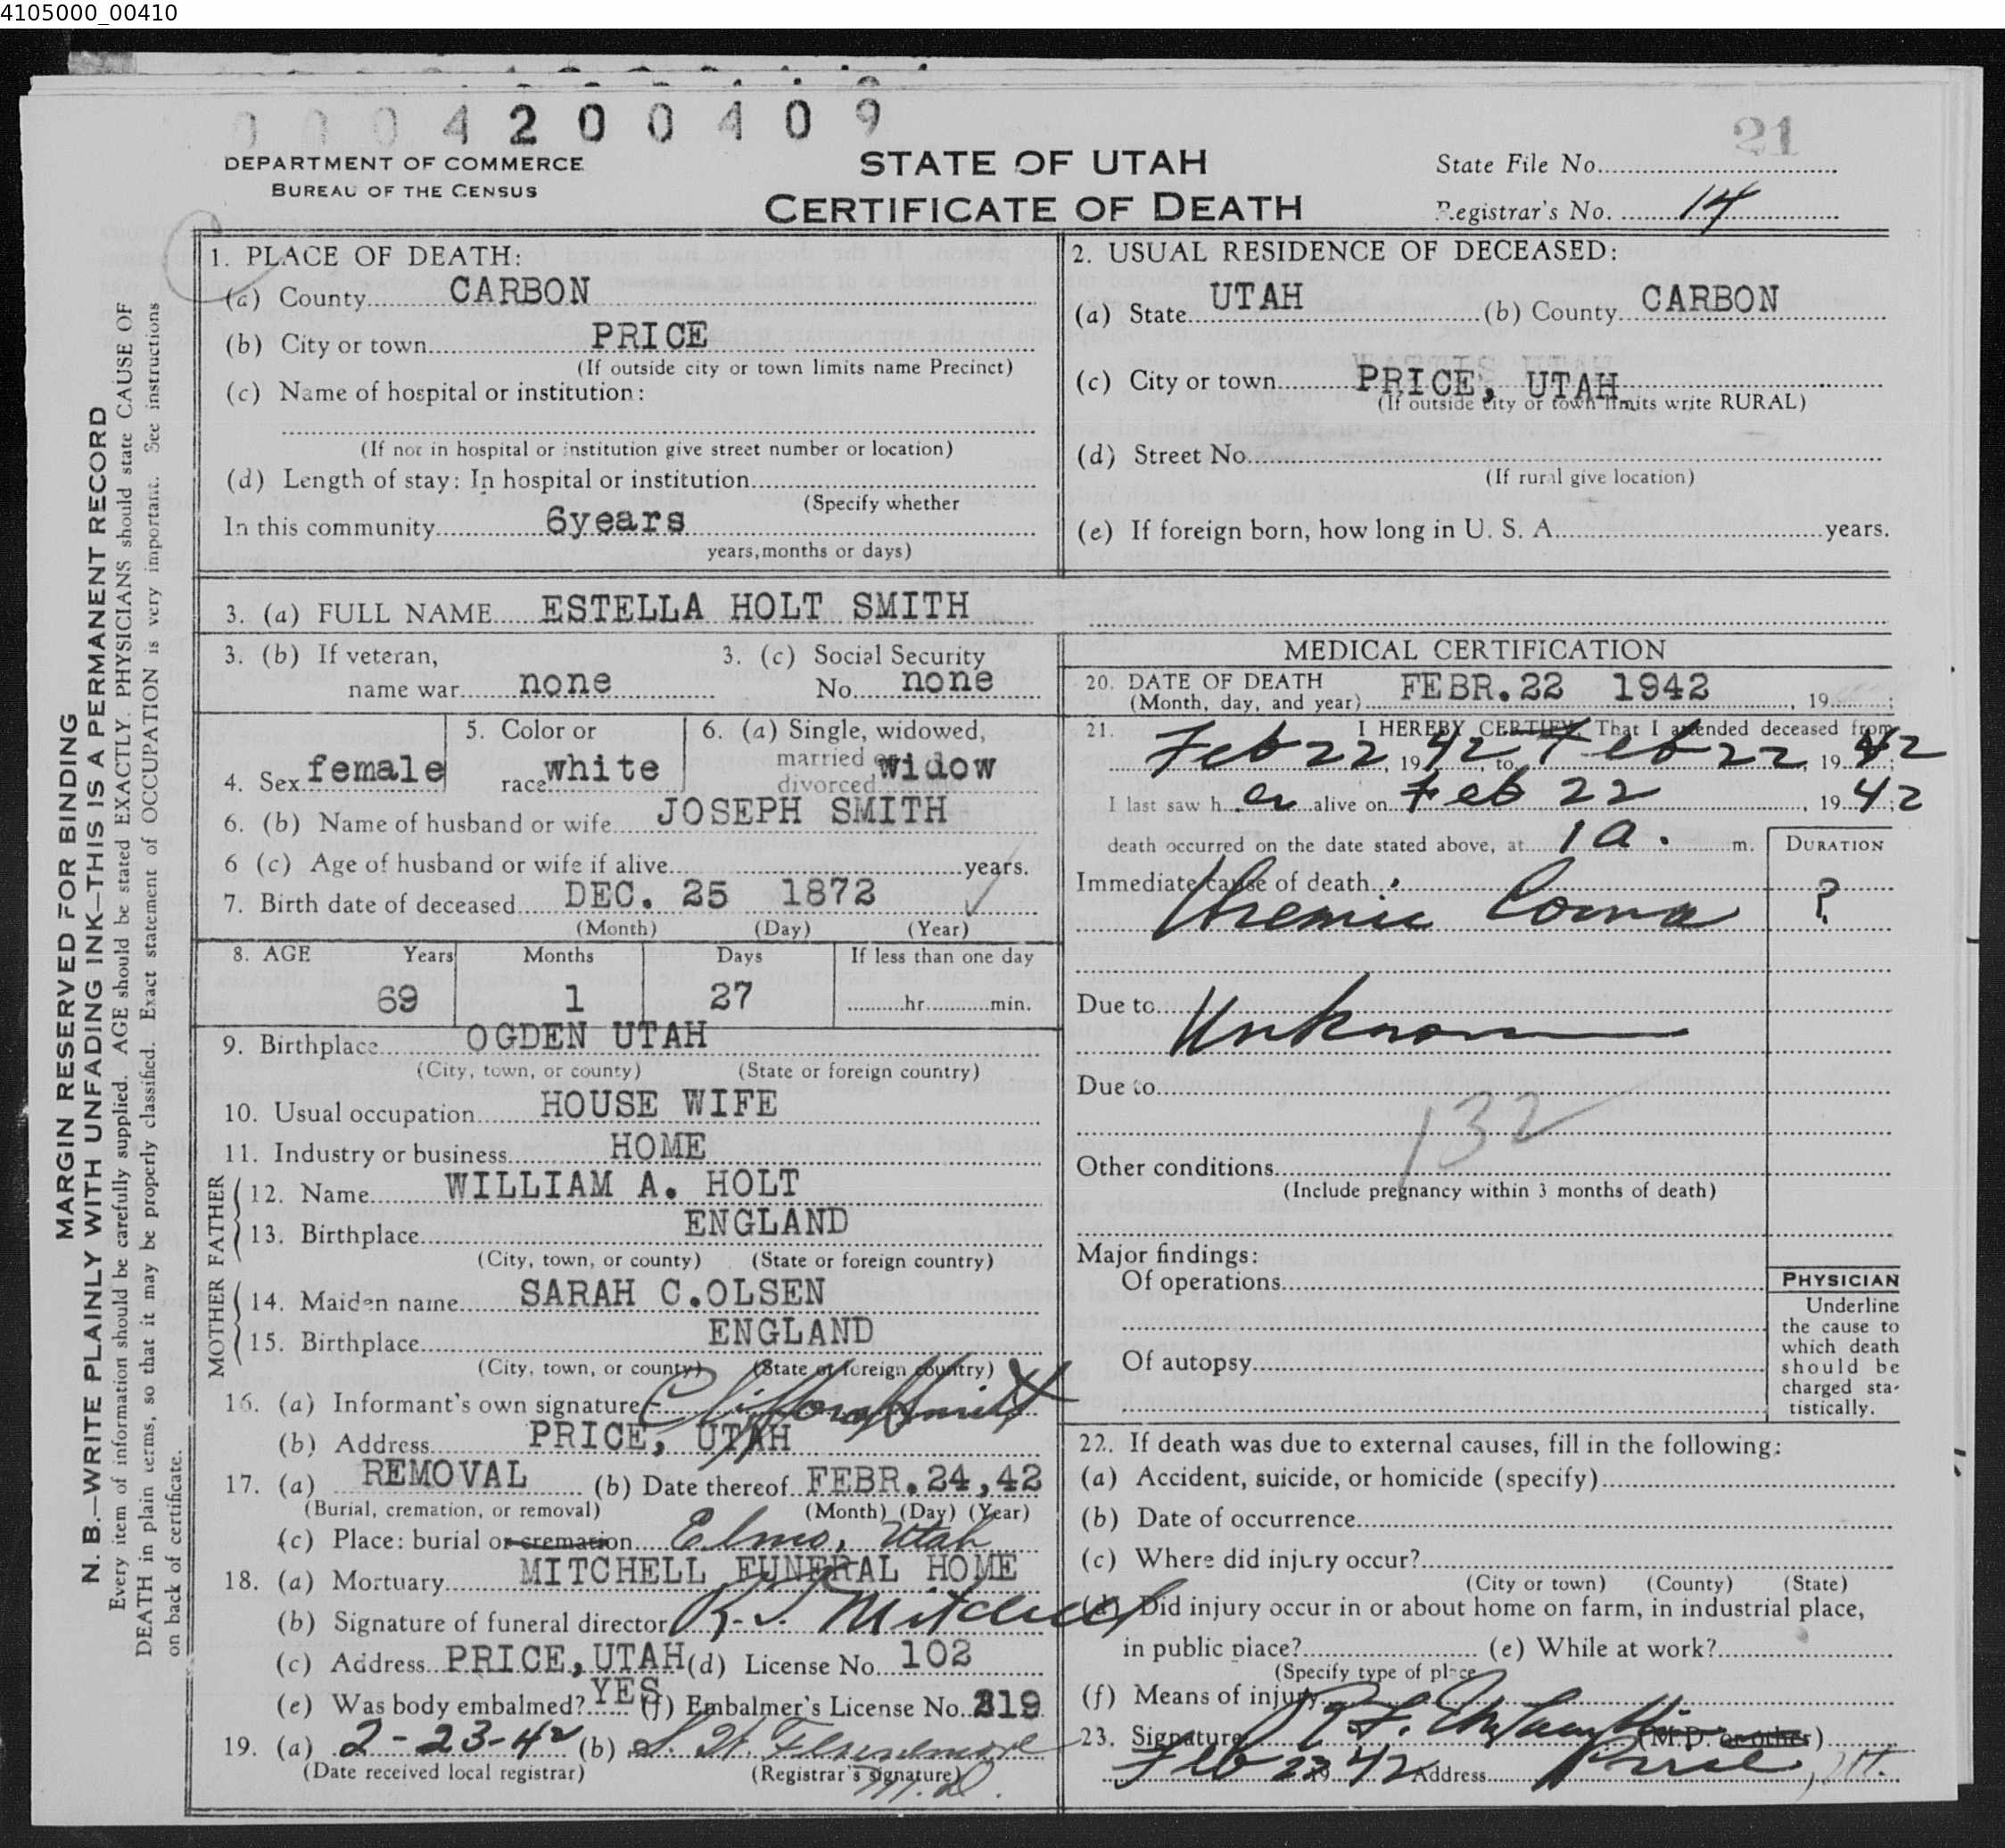 4105000_00410
0004200409
21
DEPARTMENT OF COMMERCE
BUREAU OF THE CENSUS
STATE OF UTAH
CERTIFICATE OF DEATH
State File No.
Registrar's No. 14
MARGIN RESERVED FOR BINDING
N. B.—WRITE PLAINLY WITH UNFADING INK—THIS IS A PERMANENT RECORD
Every item of information should be carefully supplied. AGE should be stated EXACTLY. PHYSICIANS should state CAUSE OF
DEATH in plain terms, so that it may be properly classified. Exact statement of OCCUPATION is very important. See instructions
on back of certificate.
1. PLACE OF DEATH:
(a) County CARBON
(b) City or town PRICE
(If outside city or town limits name Precinct)
(c) Name of hospital or institution:
(If not in hospital or institution give street number or location)
(d) Length of stay: In hospital or institution
(Specify whether
In this community 6years
years, months or days)
2. USUAL RESIDENCE OF DECEASED:
(a) State UTAH (b) County CARBON
(c) City or town PRICE, UTAH
(If outside city or town limits write RURAL)
(d) Street No.
(If rural give location)
(e) If foreign born, how long in U. S. A. years.
3. (a) FULL NAME ESTELLA HOLT SMITH
3. (b) If veteran,
name war none
3. (c) Social Security
No. none
4. Sex female
5. Color or
race white
6. (a) Single, widowed,
married or
divorced widow
6. (b) Name of husband or wife JOSEPH SMITH
6 (c) Age of husband or wife if alive years.
7. Birth date of deceased DEC. 25 1872
(Month) (Day) (Year)
8. AGE Years Months Days If less than one day
69 1 27 hr. min.
9. Birthplace OGDEN UTAH
(City, town, or county) (State or foreign country)
10. Usual occupation HOUSE WIFE
11. Industry or business HOME
FATHER
12. Name WILLIAM A. HOLT
13. Birthplace ENGLAND
(City, town, or county) (State or foreign country)
MOTHER
14. Maiden name SARAH C.OLSEN
15. Birthplace ENGLAND
(City, town, or county) (State or foreign country)
16. (a) Informant's own signature Clifford Smith X
(b) Address PRICE, UTAH
17. (a) REMOVAL (b) Date thereof FEBR.24,42
(Burial, cremation, or removal) (Month) (Day) (Year)
(c) Place: burial or cremation Elmo, Utah
18. (a) Mortuary MITCHELL FUNERAL HOME
(b) Signature of funeral director Mitchell
(c) Address PRICE,UTAH (d) License No. 102
(e) Was body embalmed? YES (f) Embalmer's License No. 319
19. (a) 2-23-42 (b) M.D.
(Date received local registrar) (Registrar's signature)
MEDICAL CERTIFICATION
20. DATE OF DEATH
(Month, day, and year) FEBR.22 1942, 19 ;
21. I HEREBY CERTIFY, That I attended deceased from
Feb 22, 1942, to Feb 22, 1942;
I last saw h er alive on Feb 22, 1942;
death occurred on the date stated above, at 1 a. m.
DURATION
Immediate cause of death
Uremic Coma ?
Due to Unknown
Due to
132
Other conditions
(Include pregnancy within 3 months of death)
Major findings:
Of operations
Of autopsy
PHYSICIAN
Underline
the cause to
which death
should be
charged sta-
tistically.
22. If death was due to external causes, fill in the following:
(a) Accident, suicide, or homicide (specify)
(b) Date of occurrence
(c) Where did injury occur?
(City or town) (County) (State)
(d) Did injury occur in or about home on farm, in industrial place,
in public place? (e) While at work?
(Specify type of place
(f) Means of injury
23. Signature (M.D. or other)
Feb 23 1942 Address Price, Ut.